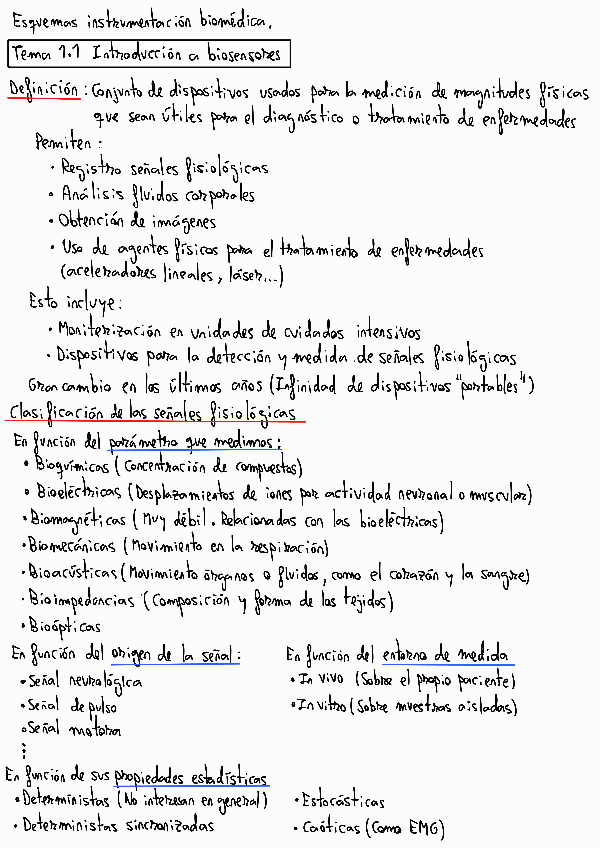 Esquemas instrumentación biomédica.
Tema 1.1 Introducción a biosensores
Definición: Conjunto de dispositivos usados para la medición de magnitudes físicas
que sean útiles para el diagnóstico o tratamiento de enfermedades
Permiten:
• Registro señales fisiológicas
• Análisis fluidos corporales
• Obtención de imágenes
• Uso de agentes físicos para el tratamiento de enfermedades
(aceleradores lineales, láser...)
Esto incluye:
• Monitorización en unidades de cuidados intensivos
• Dispositivos para la detección y medida de señales fisiológicas
Gran cambio en los últimos años (Infinidad de dispositivos "portables")
Clasificación de las señales fisiológicas
En función del parámetro que medimos:
• Bioquímicas (Concentración de compuestos)
• Bioeléctricas (Desplazamientos de iones por actividad neuronal o muscular)
• Biomagnéticas (Muy débil. Relacionadas con las bioeléctricas)
• Biomecánicas (Movimiento en la respiración)
• Bioacústicas (Movimiento órganos o fluidos, como el corazón y la sangre)
• Bioimpedancias (Composición y forma de los tejidos)
• Bioópticas
En función del origen de la señal:
• Señal neurológica
• Señal de pulso
• Señal motora
⋮
En función del entorno de medida
• In vivo (Sobre el propio paciente)
• In vitro (Sobre muestras aisladas)
En función de sus propiedades estadísticas
• Deterministas (No interesan en general)
• Deterministas sincronizadas
• Estocásticas
• Caóticas (Como EMG)